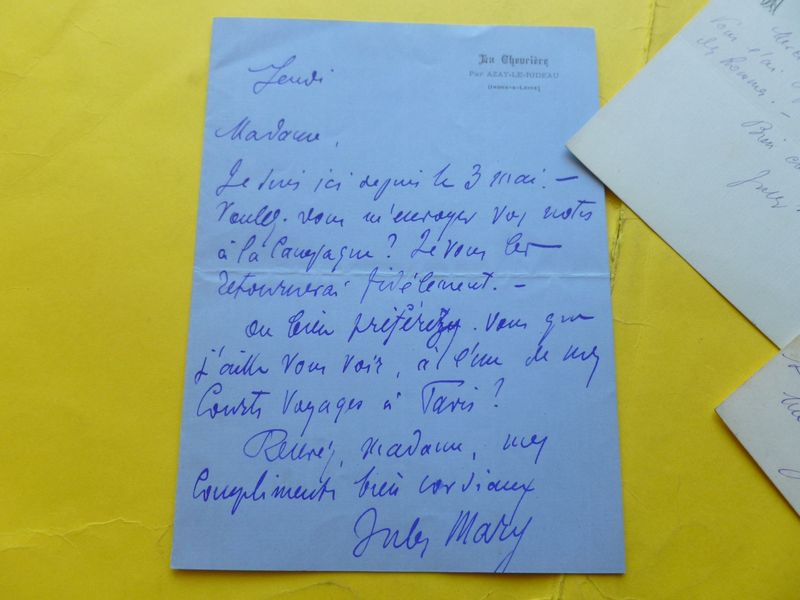 La Chevrière
Par AZAY-LE-RIDEAU
(INDRE-&-LOIRE)
Jeudi
Madame,
Je suis ici depuis le 3 mai. —
Voulez-vous m'envoyer vos notes
à la Campagne ? Je vous les
retournerai fidèlement. —
Ou bien préférez-vous que
j'aille vous voir, à l'un de mes
Courts Voyages à Paris ?
Recevez, madame, mes
Compliments bien cordiaux
Jules Mary
Vous
des hommes. —
Bien
Jules